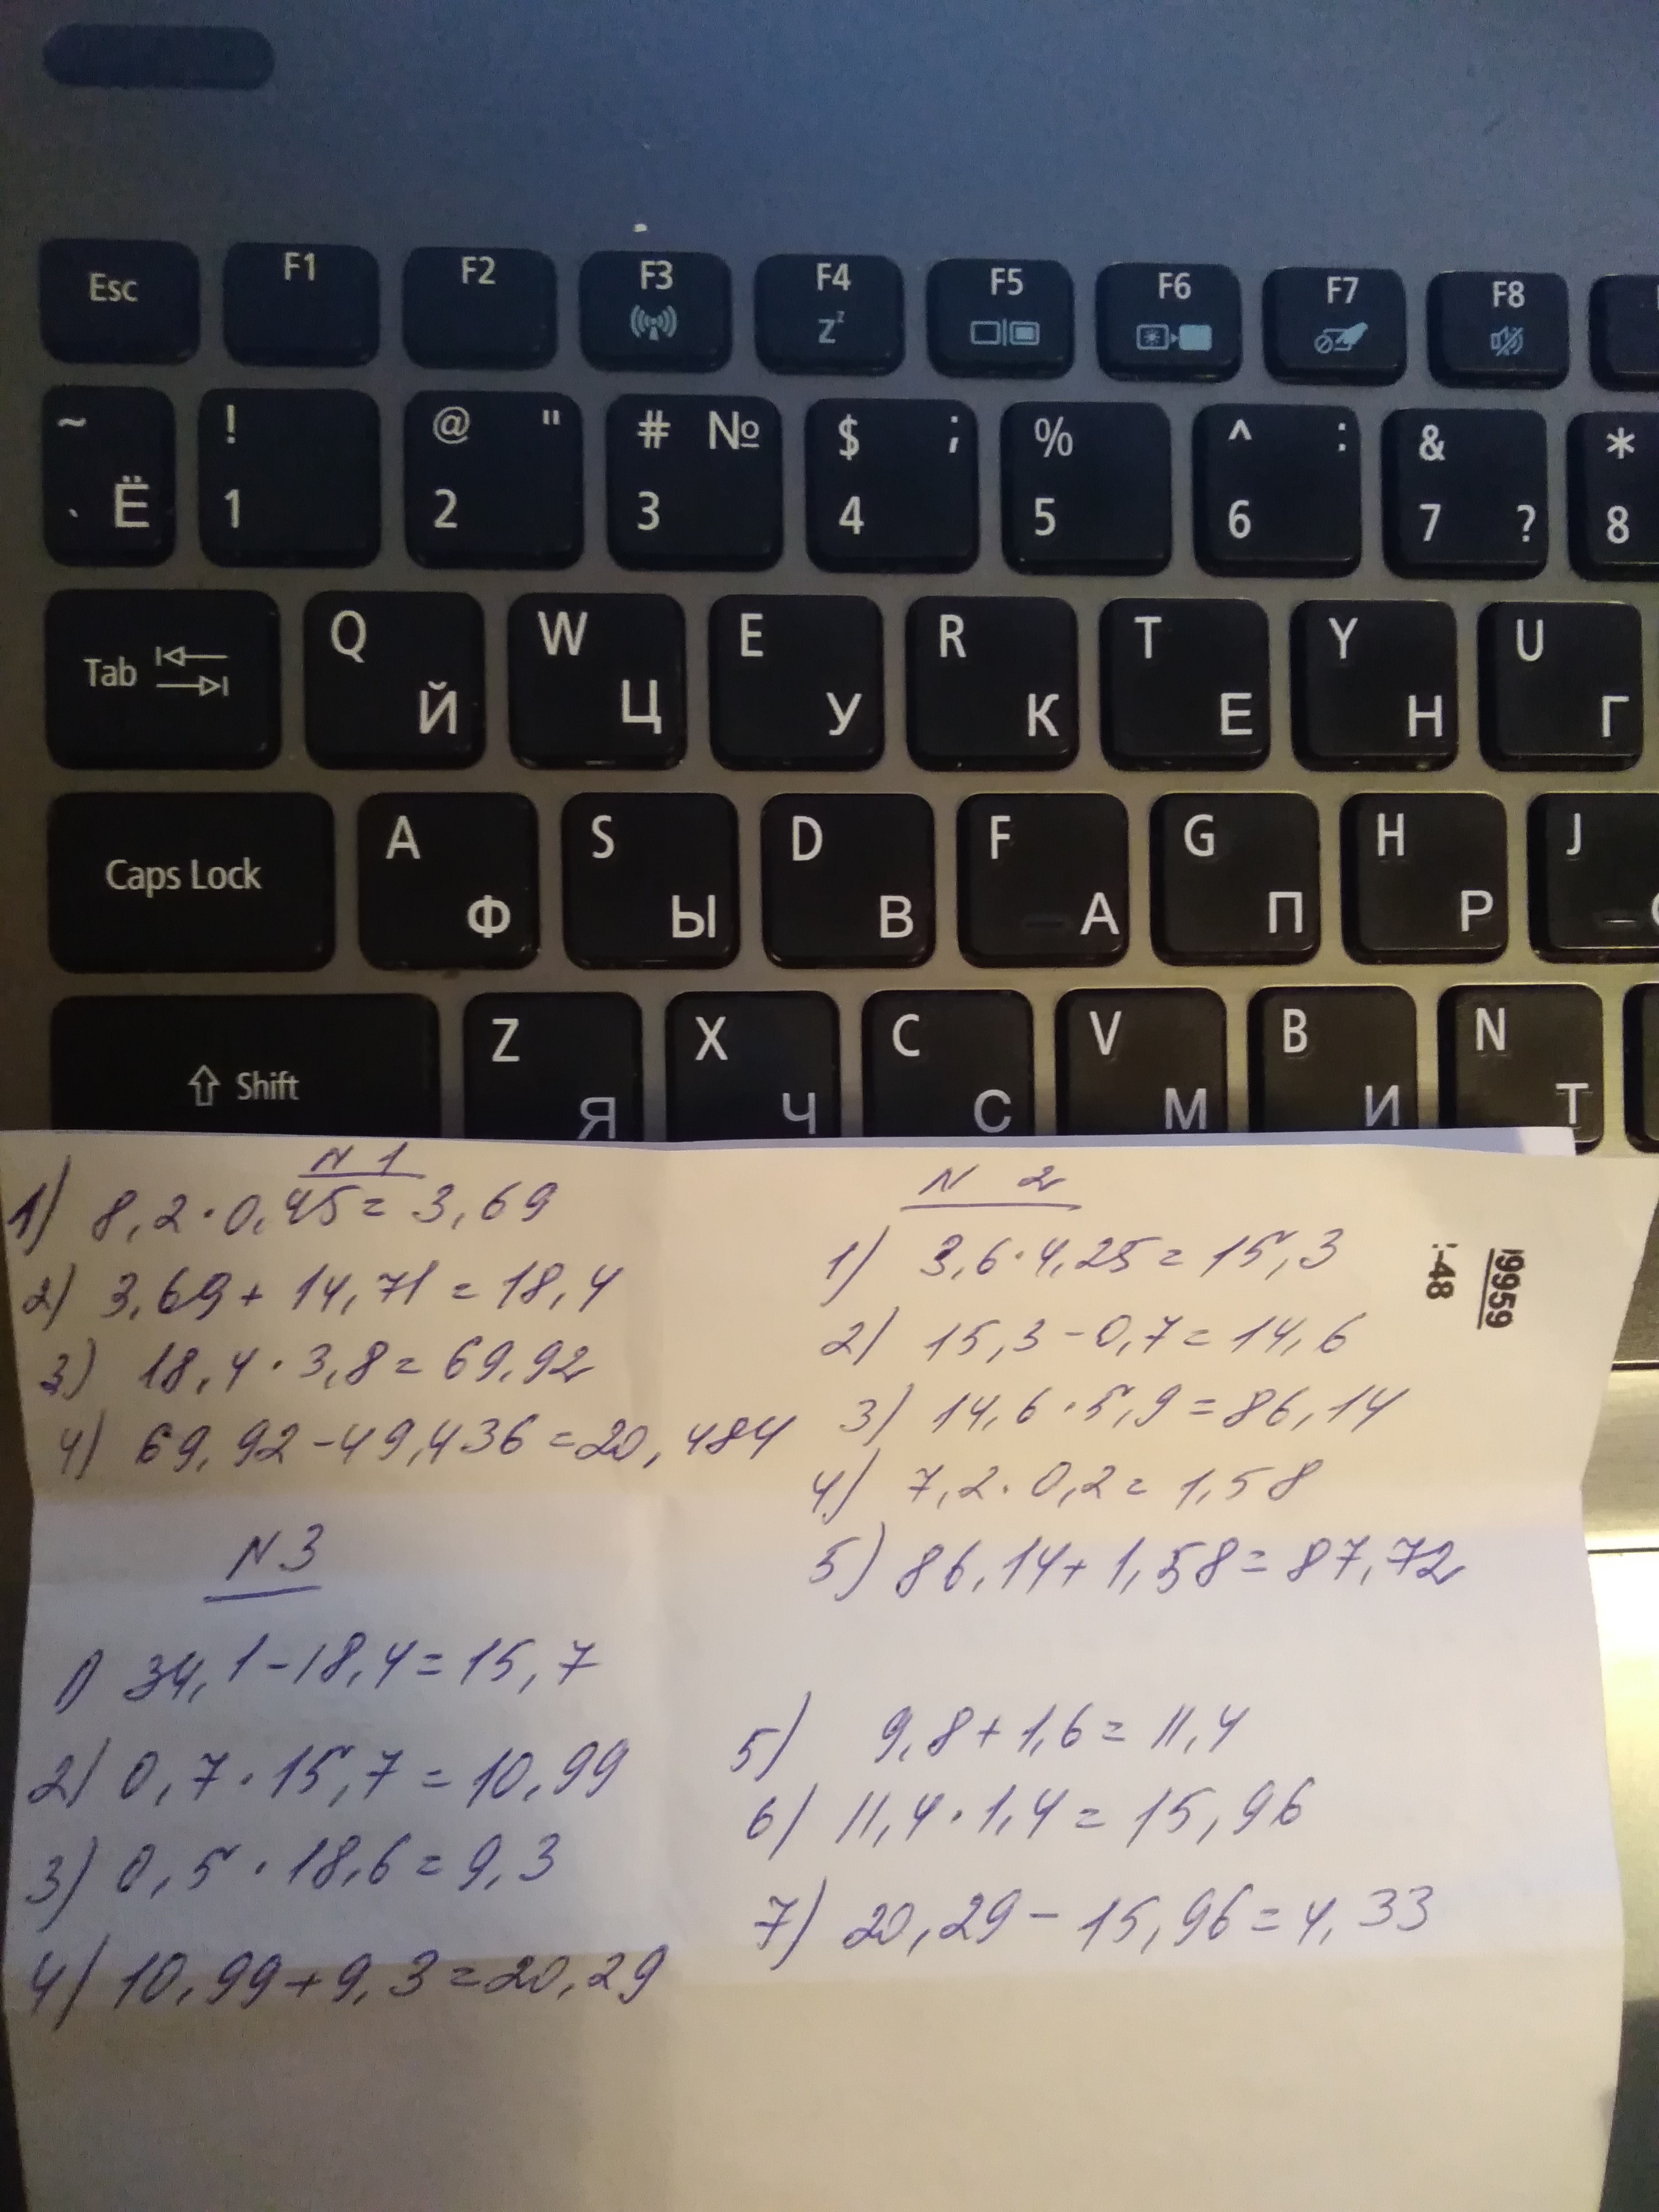 Esc F1 F2 F3 F4 Zz F5 F6 F7 F8
~ ` Ё ! 1 @ " 2 # № 3 $ ; 4 % 5 ^ : 6 & 7 ? * 8
Tab Q Й W Ц E У R К T Е Y Н U Г
Caps Lock A Ф S Ы D В F А G П H Р J
Shift Z Я X Ч C С V М B И N Т
N 1
1) 8,2·0,45=3,69
2) 3,69+14,71=18,4
3) 18,4·3,8=69,92
4) 69,92-49,436=20,484
N 2
1) 3,6·4,25=15,3
2) 15,3-0,7=14,6
3) 14,6·5,9=86,14
4) 7,2·0,2=1,58
5) 86,14+1,58=87,72
9959
:-48
N3
1) 34,1-18,4=15,7
2) 0,7·15,7=10,99
3) 0,5·18,6=9,3
4) 10,99+9,3=20,29
5) 9,8+1,6=11,4
6) 11,4·1,4=15,96
7) 20,29-15,96=4,33